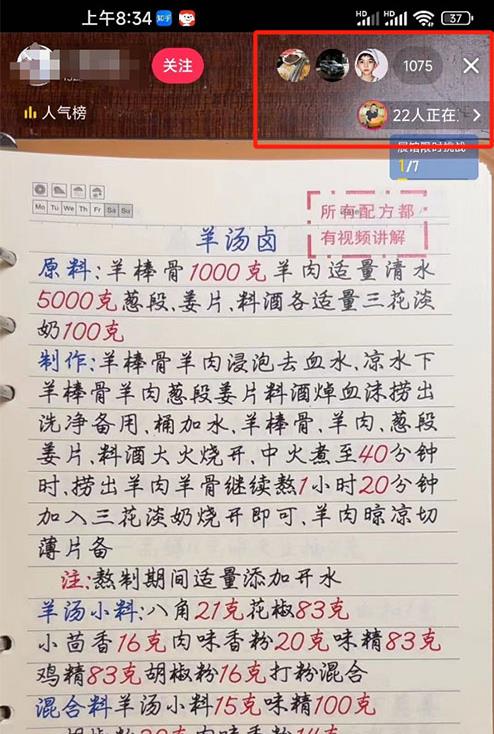 上午8:34 知乎
37
关注
1075
人气榜
22人正在
展馆限时挑战
1/7
Mo Tu We Th Fr Sa Su
所有配方都
有视频讲解
羊汤卤
原料:羊棒骨1000克羊肉适量清水
5000克葱段、姜片、料酒各适量三花淡
奶100克
制作:羊棒骨羊肉浸泡去血水,凉水下
羊棒骨羊肉葱段姜片料酒焯血沫捞出
洗净备用,桶加水、羊棒骨、羊肉、葱段
姜片、料酒大火烧开、中火煮至40分钟
时、捞出羊肉羊骨继续熬1小时20分钟
加入三花淡奶烧开即可、羊肉晾凉切
薄片备
注:熬制期间适量添加开水
羊汤小料:八角21克花椒83克
小茴香16克肉味香粉20克味精83克
鸡精83克胡椒粉16克打粉混合
混合料羊汤小料15克味精100克